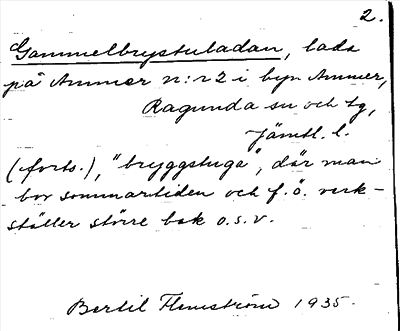 2.
Gammelbrystuladan, lada
på Ammer n:r 2 i byn Ammer,
Ragunda sn och tg,
Jämtl. l.
(forts.), "bryggstuga", där man
bor sommartiden och f. ö. verk-
ställer större bak o.s.v.
Bertil Flemström 1935.